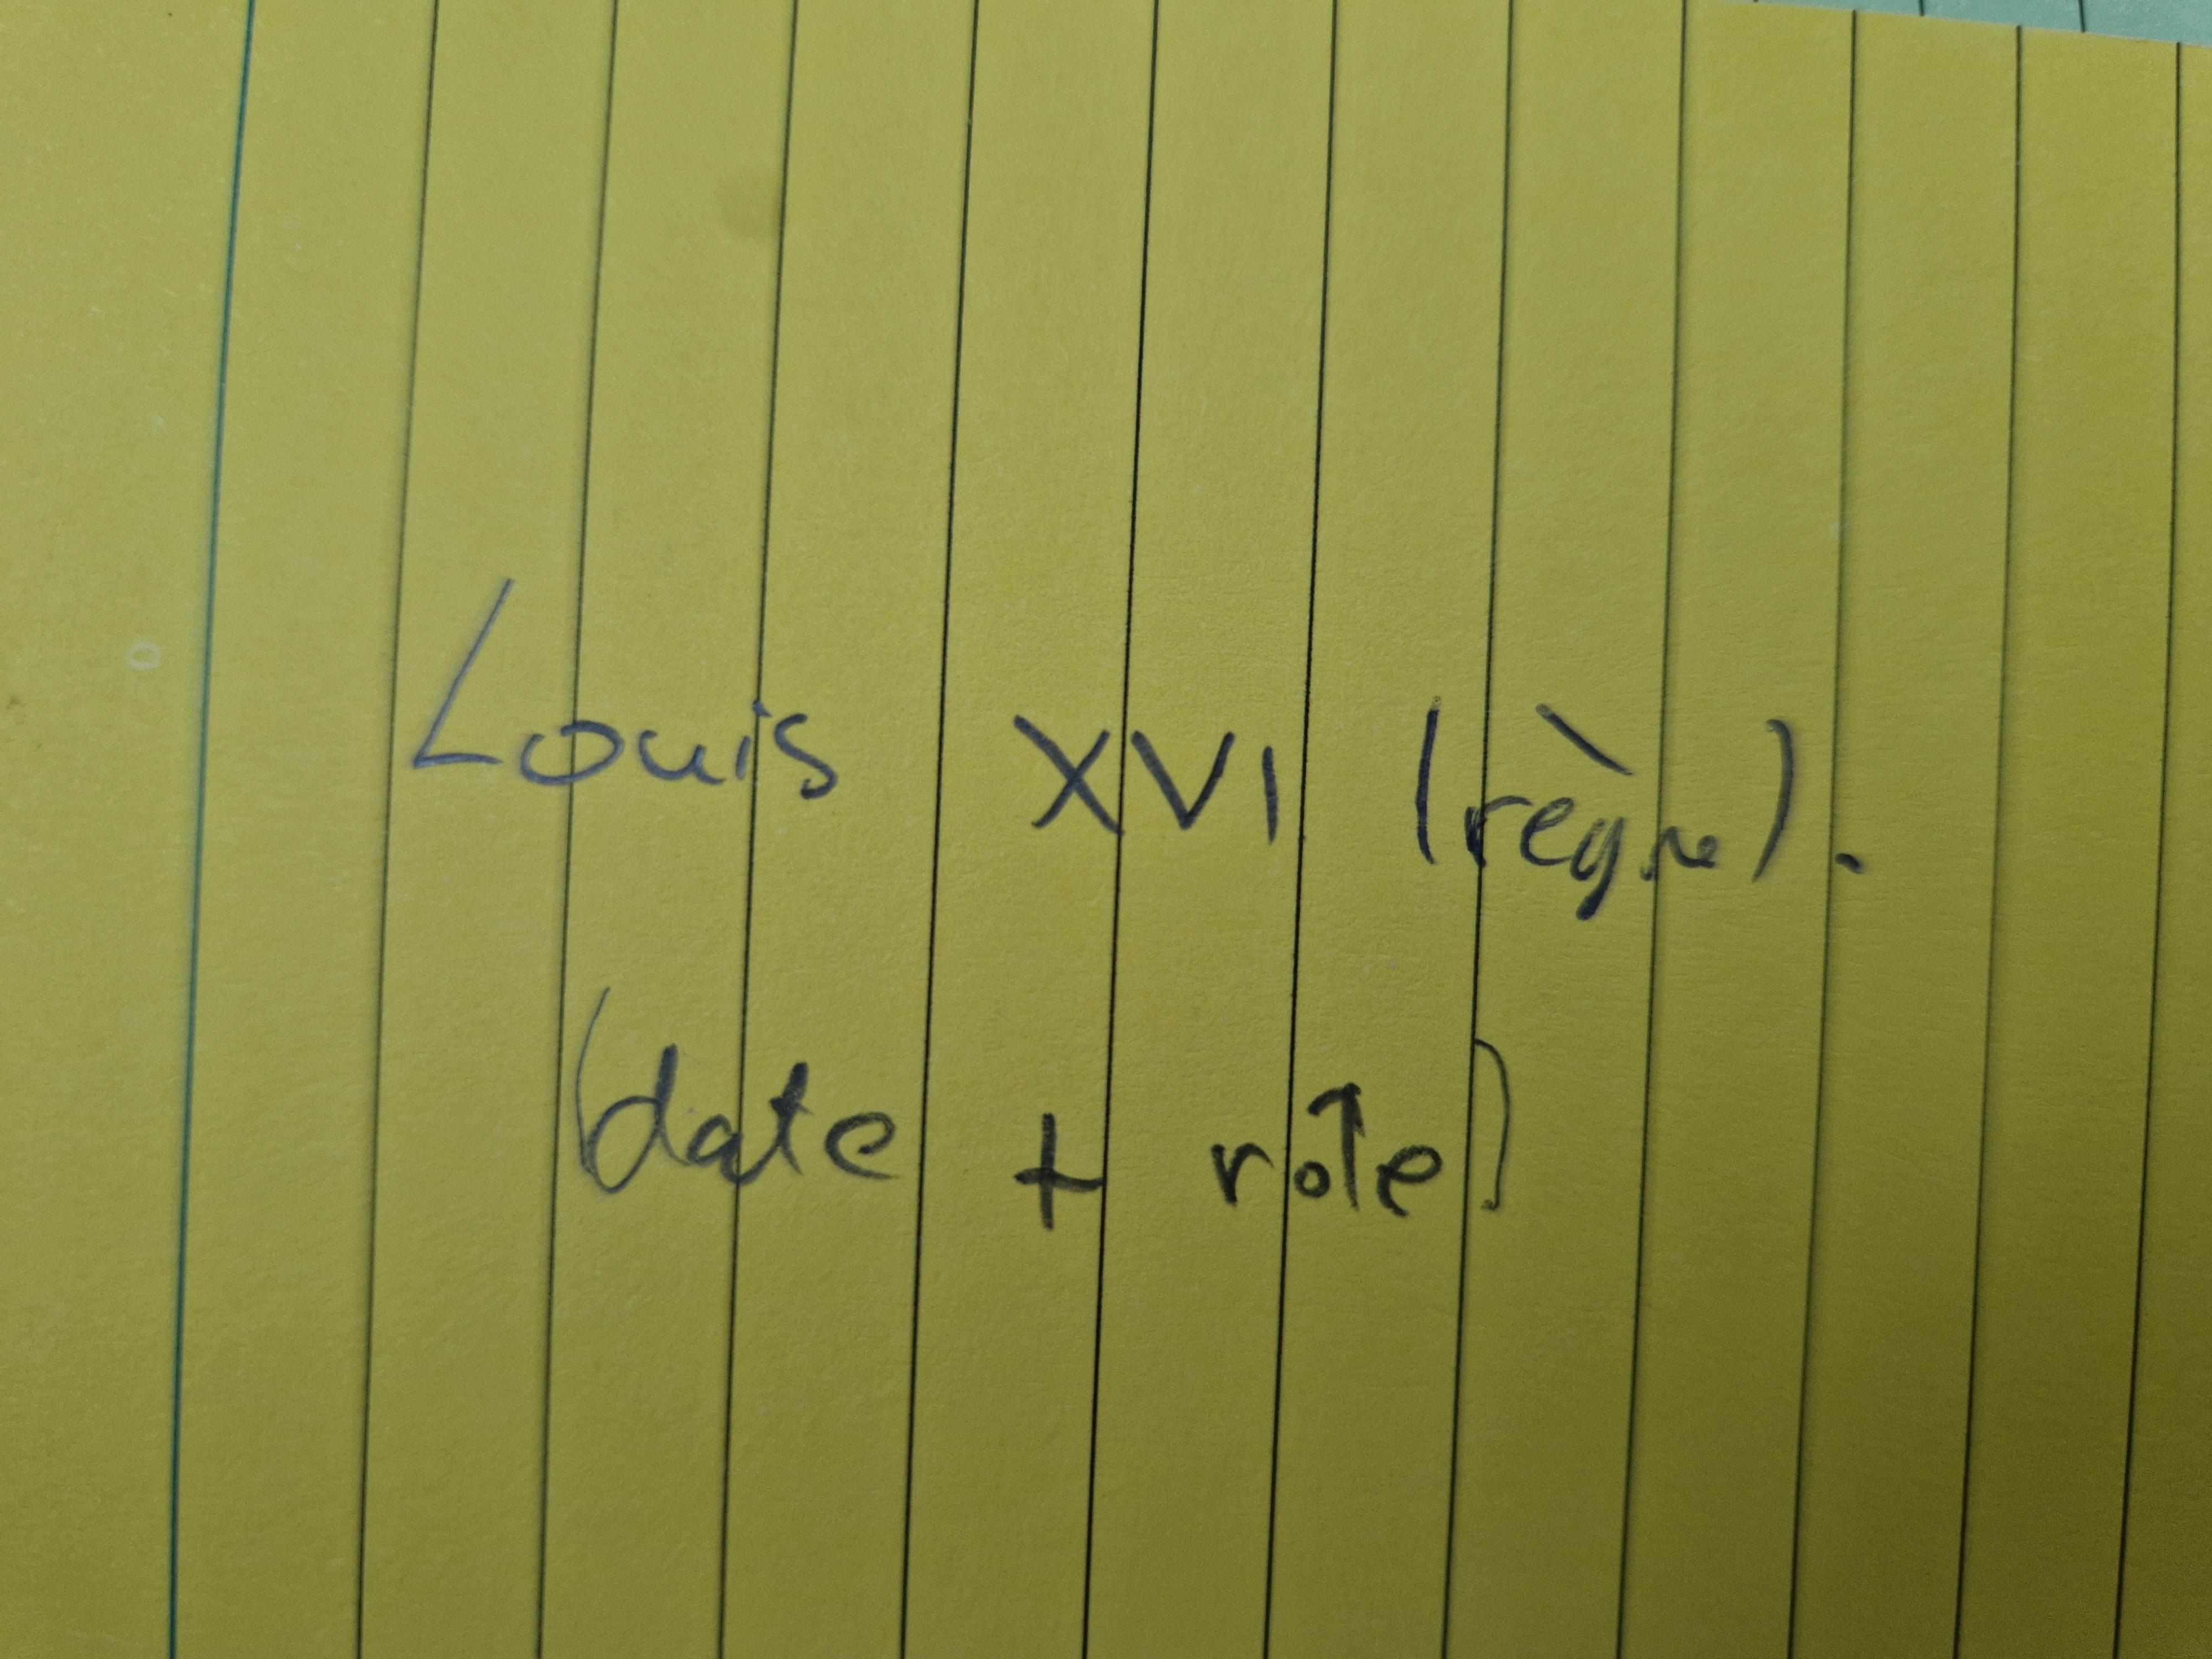 Louis XVI (règne).
(date + rôle)